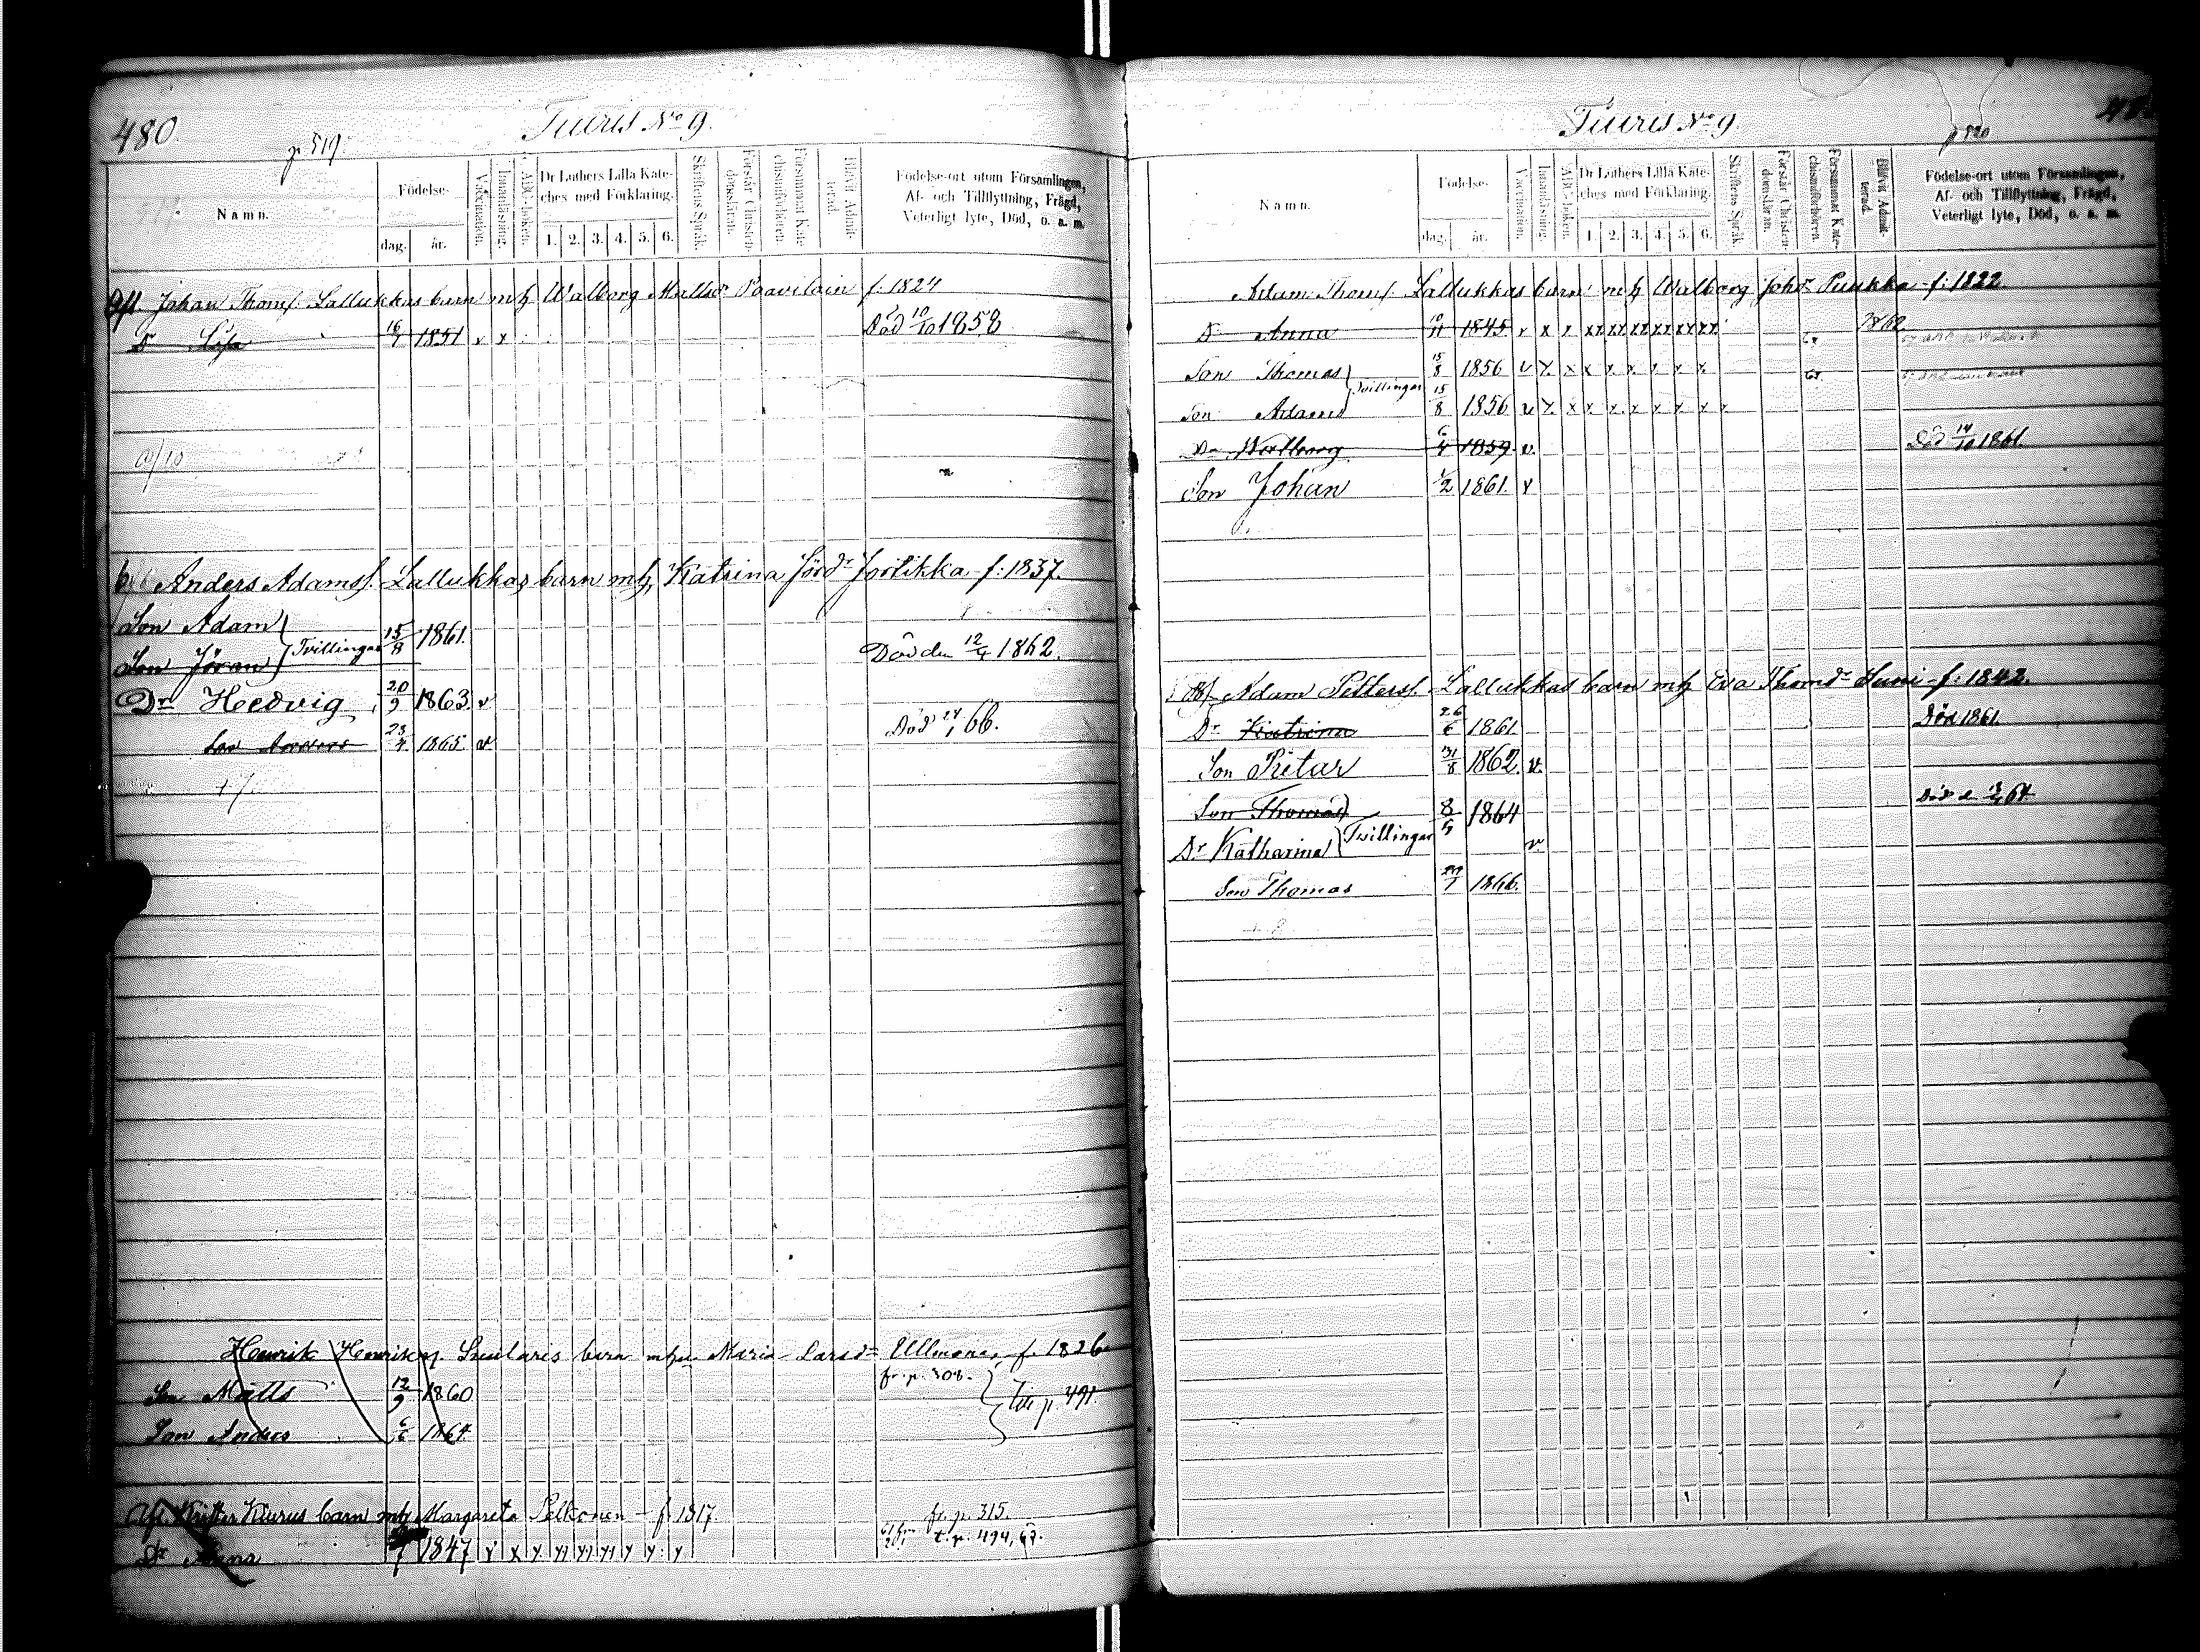 480.
Tiuris No 9.
p 519.
Namn.
Födelse-
dag. år.
Vaccination.
Innanläsning.
ABC-boken.
Dr Luthers Lilla Kate-
ches med Förklaring.
1. 2. 3. 4. 5. 6.
Skriftens Språk.
Förstår Christen-
domsläran.
Försummat Kate-
chismiförhören.
Blifvit Admit-
terad.
Födelse-ort utom Församlingen,
Af- och Tillflyttning, Frägd,
Veterligt lyte, Död, o. a. m.
Afl. Johan Thoms. Lallukkas barn m. h. Walborg Matsdr Paavilain f. 1824
Dr Lisa 16/4 1851 v x Död 10/10 1858
Anders Adamss. Lallukkas barn m h, Katrina Jördr Jortikka f: 1837.
Son Adam
Tvillingar 15/8 1861.
Son Jöran Död den 12/4 1862.
Dr Hedvig 20/9 1863. v
Son Anders 23/4 1865. v Död 24/1 66.
Henrik Henriks. barn mhu Maria Larsdr Ullmanen f. 1826
fr. p. 308.
Son Matts 12/9 1860 Till p. 491.
Son Andres 6/6 1864
Afl Krister Kiurus barn mh Margareta Pelkonen f. 1817. fr. p. 315.
Dr Anna 1847 v x y y y y y y y t. p. 494, 63.
Tiuris No 9.
p 520
Namn.
Födelse-
dag. år.
Vaccination.
Innanläsning.
ABC-boken.
Dr Luthers Lilla Kate-
ches med Förklaring.
1. 2. 3. 4. 5. 6.
Skriftens Språk.
Förstår Christen-
domsläran.
Försummat Kate-
chismiförhören.
Blifvit Admit-
terad.
Födelse-ort utom Församlingen,
Af- och Tillflyttning, Frägd,
Veterligt lyte, Död, o. a. m.
Adam Thoms. Lallukkas barn m h Walborg Johdr Puukka f: 1822.
Dr Anna 10/11 1845 v x x xx xx xx xx xx xx
Son Thomas 15/8 1856 v x x x x x x x x
Tvillingar
Son Adam 15/8 1856 v x x x x x x x x x
Dr Walborg 6/4 1859. v. Död 14/10 1861.
Son Johan 1/2 1861. v
Adam Petters. Lallukkas barn m h Eva Thomdr Suni f: 1842.
Dr Katrina 26/6 1861 Död 1861.
Son Pietar 31/8 1862. v.
Son Thomas 8/4 1864
Tvillingar
Dr Katharina v
Son Thomas 1866.